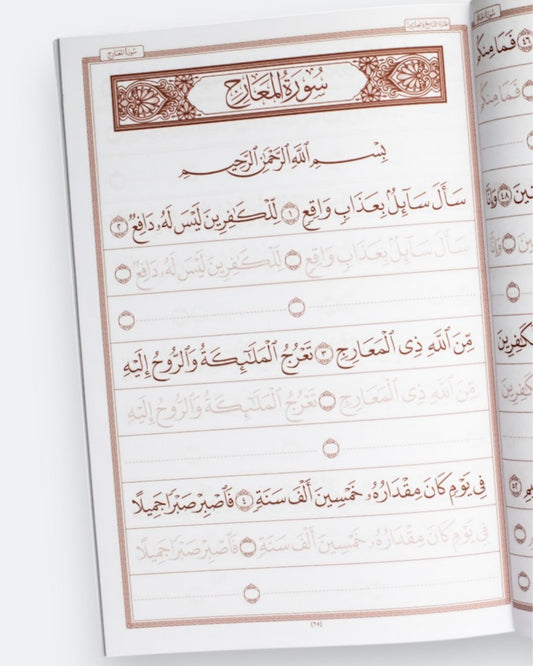 سورة المعارج
الجزء التاسع والعشرون
سُورَةُ المَعَارِجِ
بِسْمِ اللَّهِ الرَّحْمَٰنِ الرَّحِيمِ
سَأَلَ سَآئِلُۢ بِعَذَابٍ وَاقِعٍ ١ لِّلْكَٰفِرِينَ لَيْسَ لَهُۥ دَافِعٌ ٢
سَأَلَ سَآئِلُۢ بِعَذَابٍ وَاقِعٍ لِّلْكَٰفِرِينَ لَيْسَ لَهُۥ دَافِعٌ
مِّنَ ٱللَّهِ ذِى ٱلْمَعَارِجِ ٣ تَعْرُجُ ٱلْمَلَٰٓئِكَةُ وَٱلرُّوحُ إِلَيْهِ
مِّنَ ٱللَّهِ ذِى ٱلْمَعَارِجِ تَعْرُجُ ٱلْمَلَٰٓئِكَةُ وَٱلرُّوحُ إِلَيْهِ
فِى يَوْمٍ كَانَ مِقْدَارُهُۥ خَمْسِينَ أَلْفَ سَنَةٍ ٤ فَٱصْبِرْ صَبْرًا جَمِيلًا
فِى يَوْمٍ كَانَ مِقْدَارُهُۥ خَمْسِينَ أَلْفَ سَنَةٍ فَٱصْبِرْ صَبْرًا جَمِيلًا
(٢٥)
٤٦ فَمَا مِنكُم
فَمَا مِنكُم
٤٨ وَإِنَّا
وَإِنَّا
٥٢